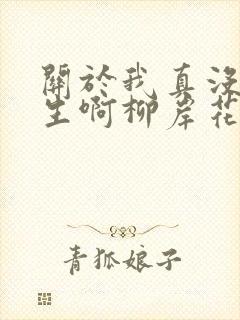 關於我真沒
生啊柳岸花
青狐娘子